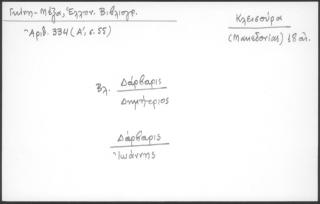 Γκίνη-Μέξα, Ἑλλην. Βιβλιογρ.
Κλεισούρα
Ἀριθ. 334 (Α', σ. 55)
(Μακεδονίας) 18 αἰ.
Βλ. Δάρβαρις
Δημήτριος
Δάρβαρις
Ἰωάννης